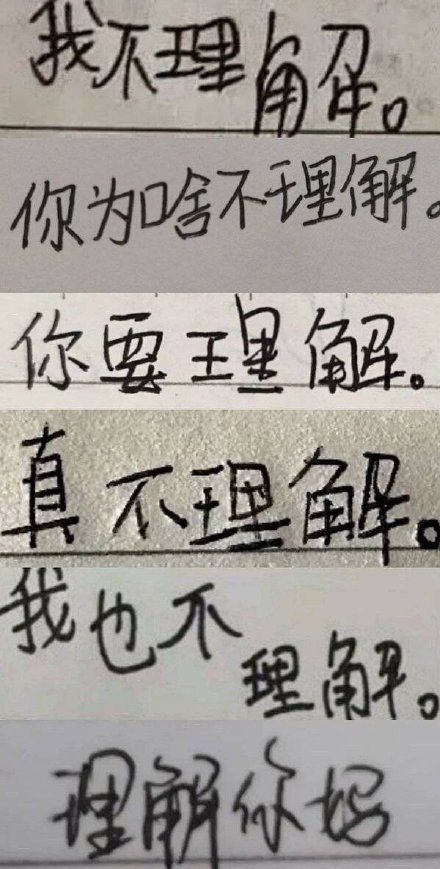 我不理解。
你为啥不理解。
你要理解。
真不理解。
我也不
理解。
理解你妈